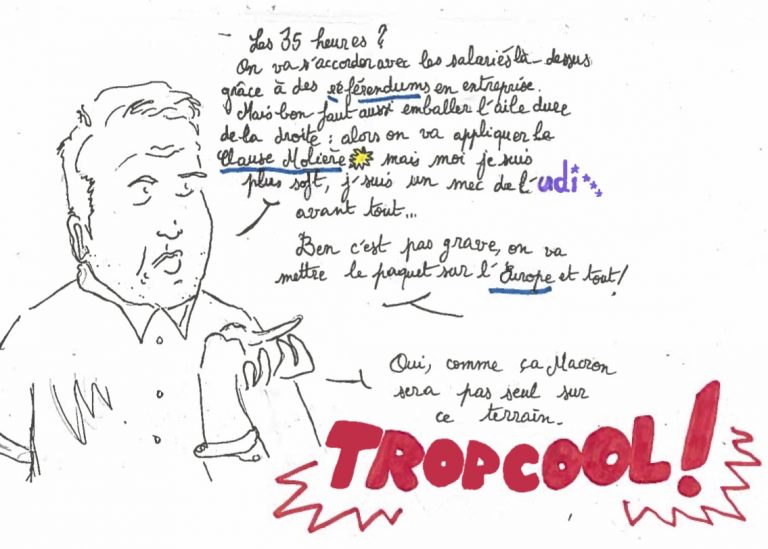 - Les 35 heures ?
On va s'accorder avec les salariés là-dessus
grâce à des référendums en entreprise.
Mais bon faut aussi emballer l'aile dure
de la droite : alors on va appliquer la
Clause Molière mais moi je suis
plus soft, j'suis un mec de l'udi
avant tout...
Ben c'est pas grave, on va
mettre le paquet sur l'Europe et tout !
Oui, comme ça Macron
sera pas seul sur
ce terrain.
TROPCOOL!